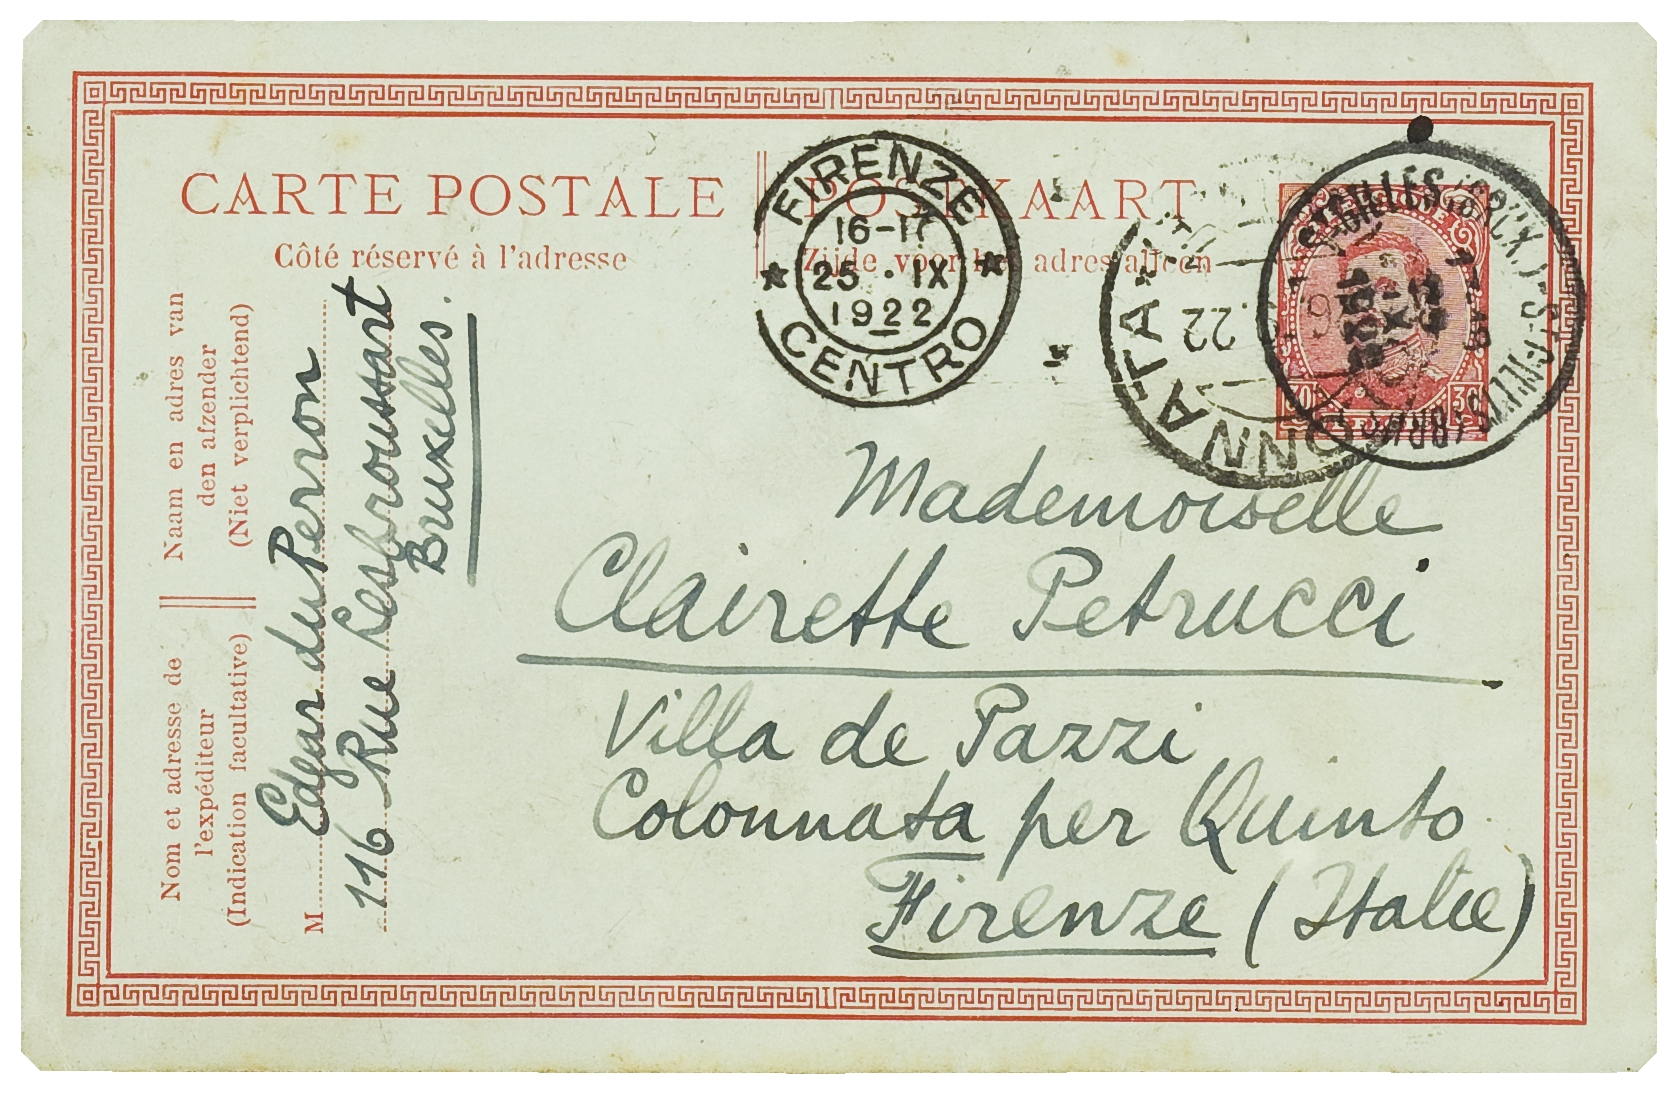 CARTE POSTALE
POSTKAART
Côté réservé à l'adresse
Zijde voor het adres alleen
FIRENZE
16-17
25 · IX
1922
CENTRO
COLONNATA
22
ST-GILLES (BRUX.) 1
1922
ST-GILLIS (BRUSS.) 1
30
30
Naam en adres van
den afzender
(Niet verplichtend)
Nom et adresse de
l'expéditeur
(Indication facultative)
M
Edgar du Perron
116 Rue Lesbroussart
Bruxelles.
Mademoiselle
Clairette Petrucci
Villa de Pazzi
Colonnata per Quinto
Firenze (Italie)